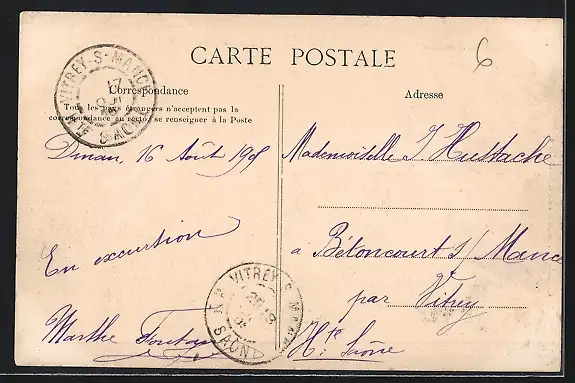 CARTE POSTALE
6
Correspondance
Tous les pays étrangers n'acceptent pas la
correspondance au recto, se renseigner à la Poste
Dinan, 16 Août 190
En excursion
Marthe
Adresse
Mademoiselle J. Hustache
a Bétoncourt s/ Mance
par Vitrey
Hte Saône
VITREY-S-MANCE
17
Hte SAONE
VITREY-S-MANCE
SAONE